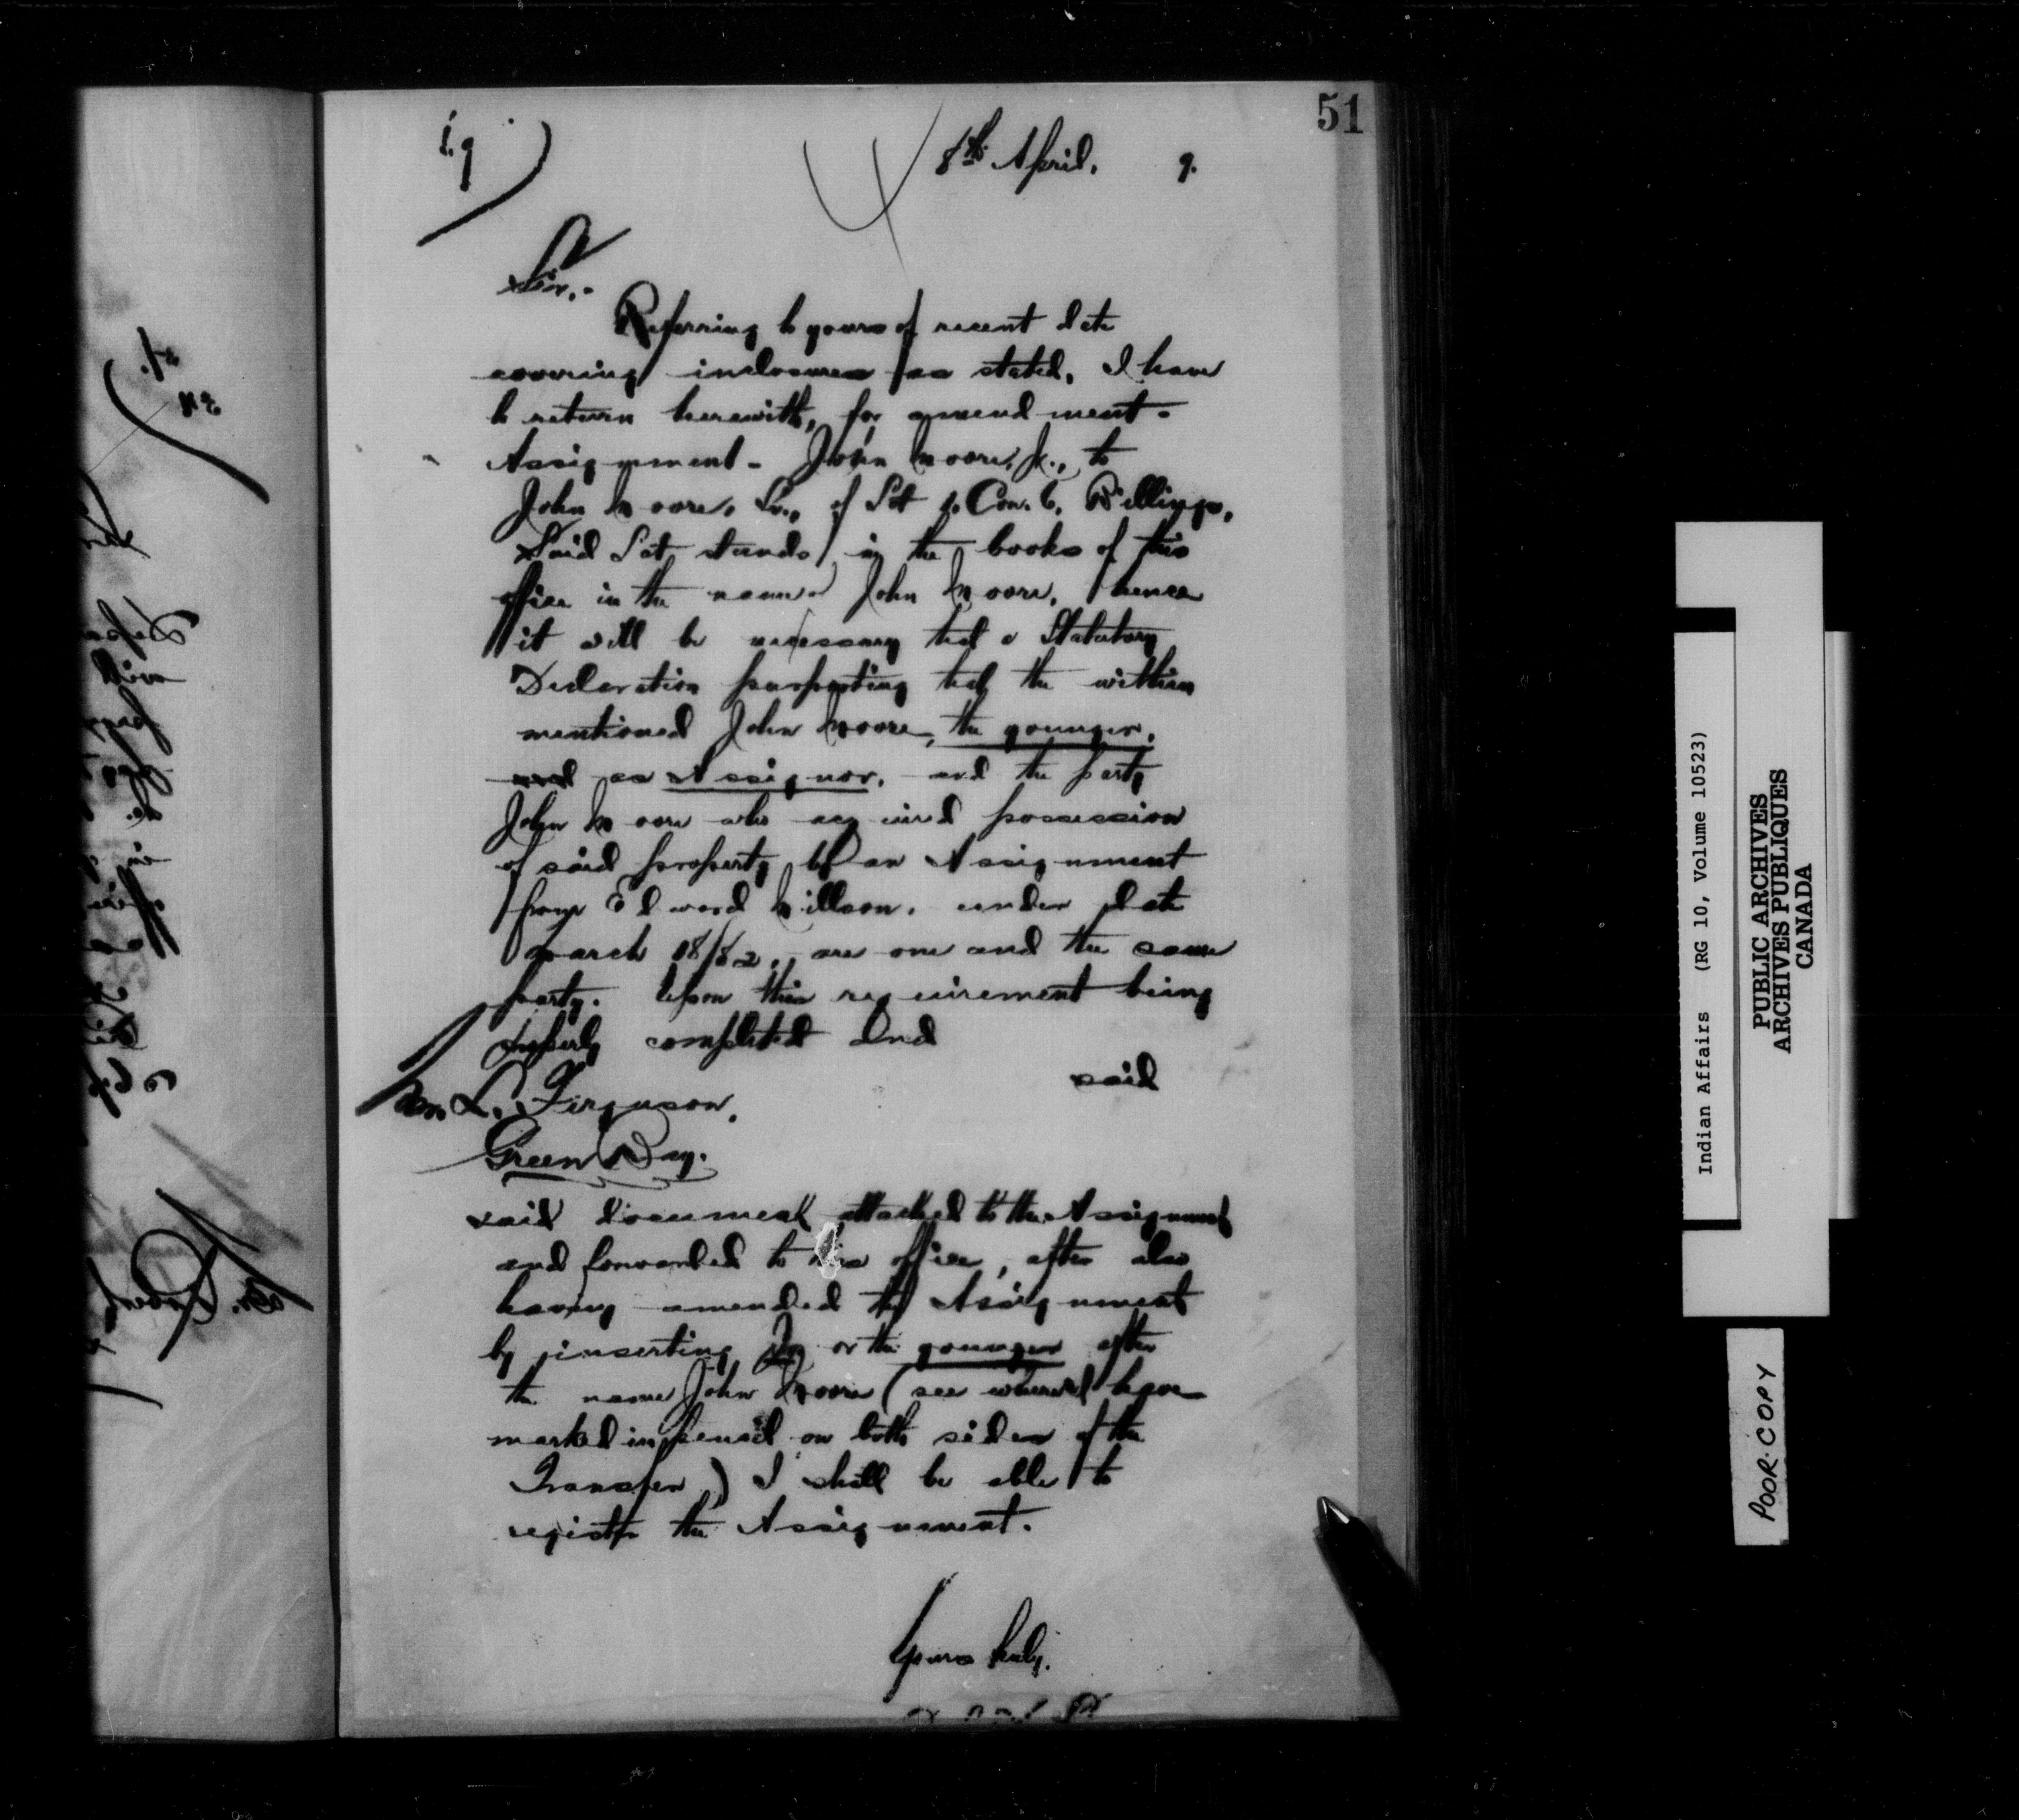 51
8th April, 9.
Sir,-
Referring to yours of recent date
covering inclosures as stated, I have
to return herewith, for amendment -
Assignment - John Moore, Jr., to
John Moore, Sr., of Lot 1. Con. 6, Billings,
Said Lot stands in the books of this
office in the name of John Moore, hence
it will be necessary that a Statutory
Declaration purporting that the within
mentioned John Moore, the younger,
as Assignor, and the party
John Moore who acquired possession
of said property by an Assignment
from Edward Willson, under date
March 18/82, are one and the same
party. Upon this requirement being
properly completed and
said
Wm. L. Ferguson,
Green Bay.
said document attached to the Assignment
and forwarded to this office, after also
having amended the Assignment
by inserting Jr or the younger after
the name John Moore (see where I have
marked in pencil on both sides of the
Transfer) I shall be able to
register the Assignment.
Yours truly,
Indian Affairs (RG 10, Volume 10523)
PUBLIC ARCHIVES
ARCHIVES PUBLIQUES
CANADA
POOR COPY